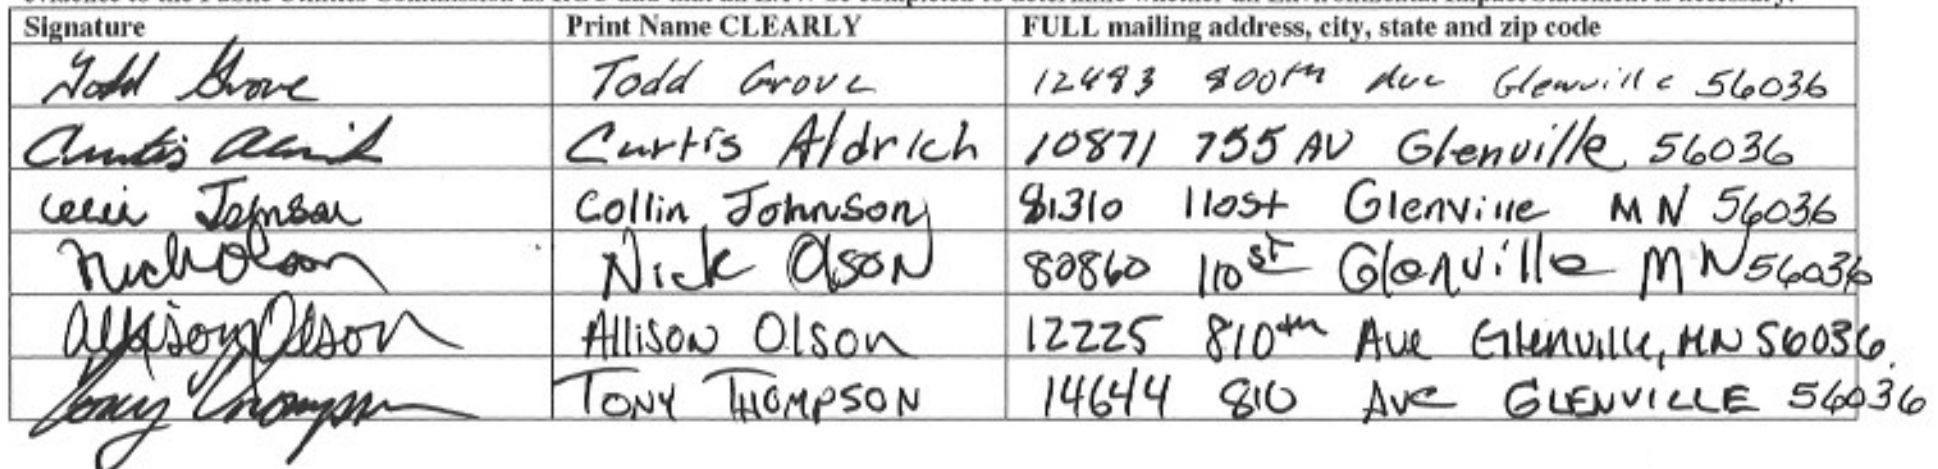 Signature Print Name CLEARLY FULL mailing address, city, state and zip code
Todd Grove Todd Grove 12483 800th Ave Glenville 56036
Curtis Aldrich Curtis Aldrich 10871 755 AV Glenville 56036
Johnson Collin Johnson 81310 110st Glenville MN 56036
Nick Olson Nick Olson 80860 110st Glenville MN 56036
Allison Olson Allison Olson 12225 810th Ave Glenville, MN 56036.
Tony Thompson TONY THOMPSON 14644 810 Ave GLENVILLE 56036